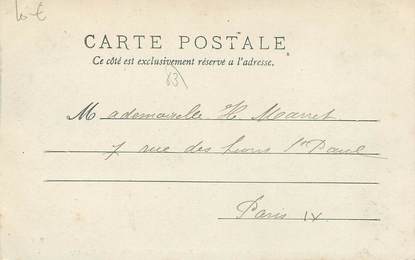 10-€
CARTE POSTALE.
Ce côté est exclusivement réservé a l'adresse.
63
Mademoiselle H. Marret
7 rue des Lions St Paul
Paris IX